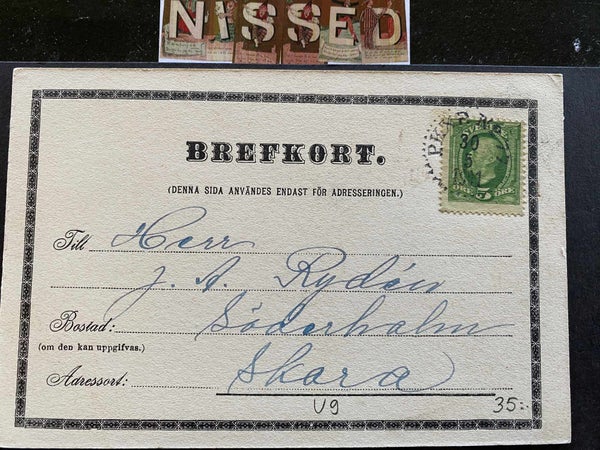 NISSED
BREFKORT.
(DENNA SIDA ANVÄNDES ENDAST FÖR ADRESSERINGEN.)
Till Herr
J. A. Rydén
Bostad: Söderholm
(om den kan uppgifvas.)
Adressort: Skara
U9 35:-
PKXP. N
30
5
ÖRE 5 ÖRE